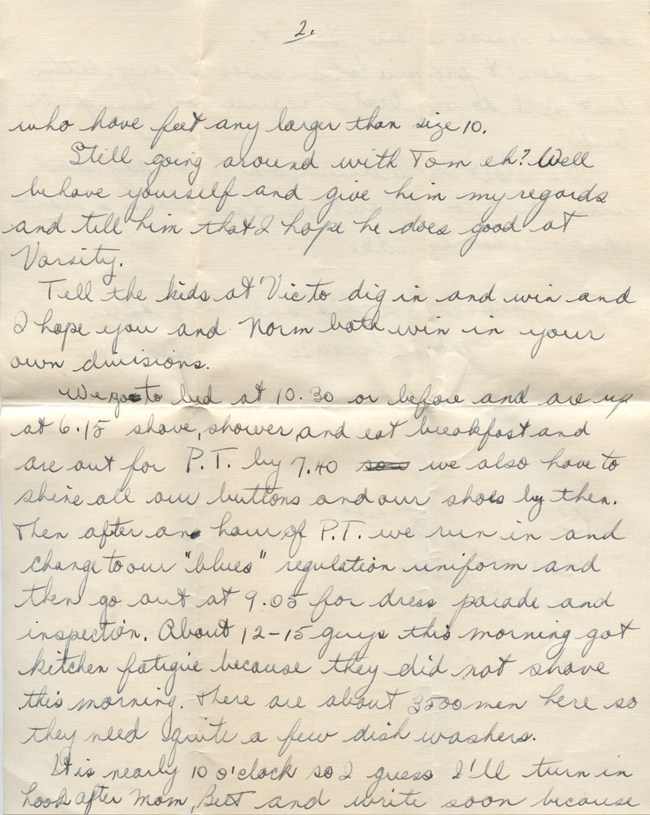 2.
who have feet any larger than size 10.
Still going around with Tom eh? Well
behave yourself and give him my regards
and tell him that I hope he does good at
Varsity.
Tell the kids at Vic to dig in and win and
I hope you and Norm both win in your
own divisions.
We go to bed at 10.30 or before and are up
at 6.15 shave, shower, and eat breakfast and
are out for P.T. by 7.40 we also have to
shine all our buttons and our shoes by then.
Then after an hour of P.T. we run in and
change to our "blues" regulation uniform and
then go out at 9.05 for dress parade and
inspection. About 12-15 guys this morning got
kitchen fatigue because they did not shave
this morning. There are about 3500 men here so
they need quite a few dish washers.
It is nearly 10 o'clock so I guess I'll turn in
Look after Mom, Bett and write soon because